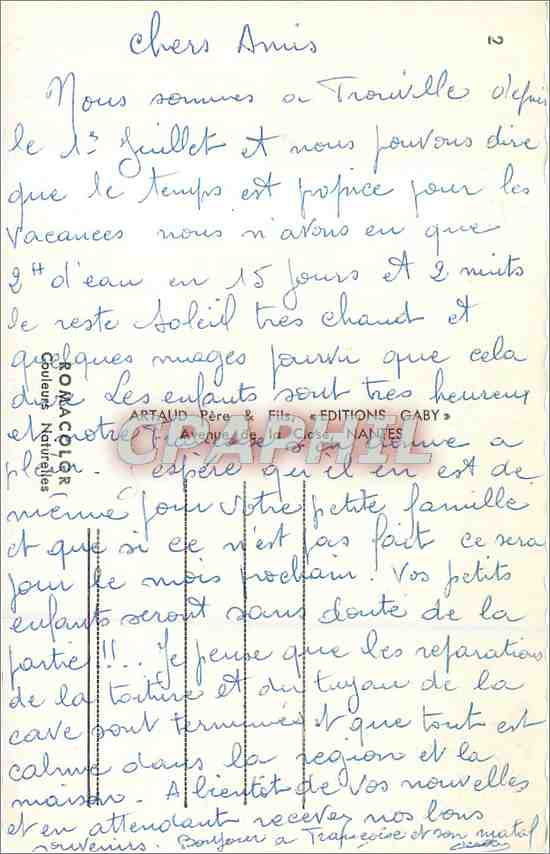 2
Chers Amis
Nous sommes a Trouville depuis
le 1er Juillet et nous pouvons dire
que le temps est propice pour les
vacances nous n'avons eu que
2H d'eau en 15 jours et 2 nuits
le reste Soleil très chaud et
quelques nuages pourvu que cela
dure Les enfants sont très heureux
et notre a
plein. J'espère qu'il en est de
même pour votre petite famille
et que si ce n'est pas fait ce sera
pour le mois prochain. Vos petits
enfants seront sans doute de la
partie !!.. Je pense que les reparations
de la toiture et du tuyau de la
cave sont terminées et que tout est
calme dans la region et la
maison. A bientôt de vos nouvelles
et en attendant recevez nos bons
souvenirs. Bonjour a Françoise et son
ROMACOLOR
Couleurs Naturelles
ARTAUD Père & Fils, « EDITIONS GABY »
Avenue de la Close, NANTES
CPAPHIL.COM